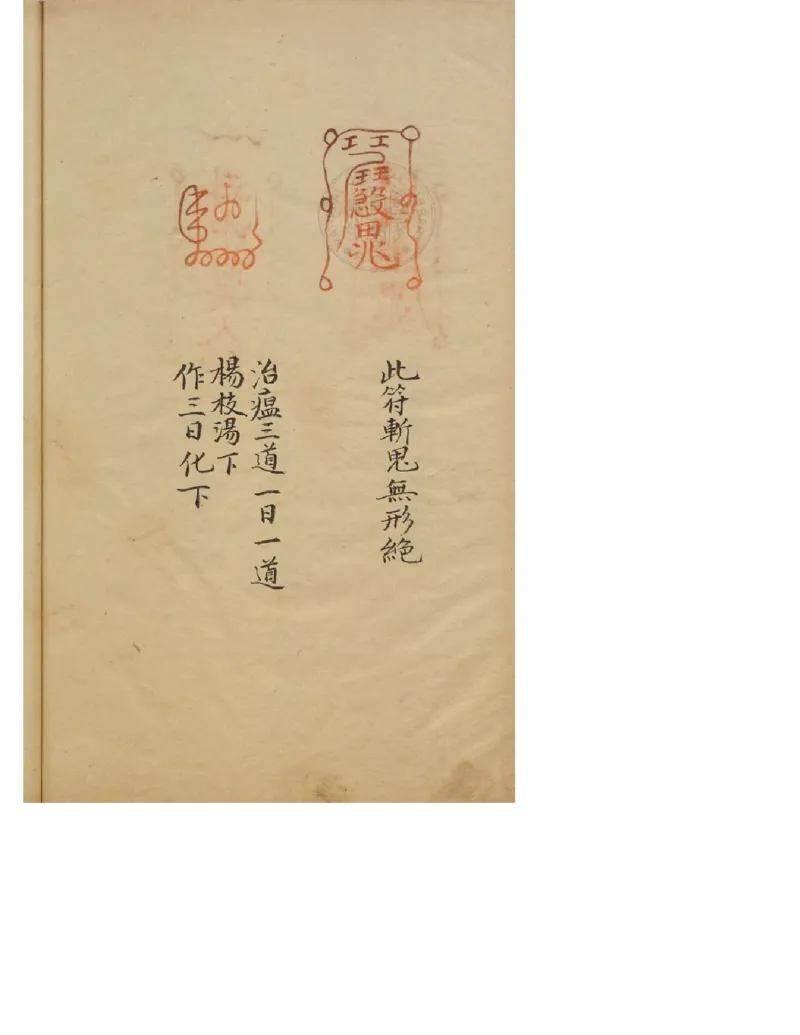 此符斬鬼無形絶
治瘟三道一日一道
楊枝湯下
作三日化下